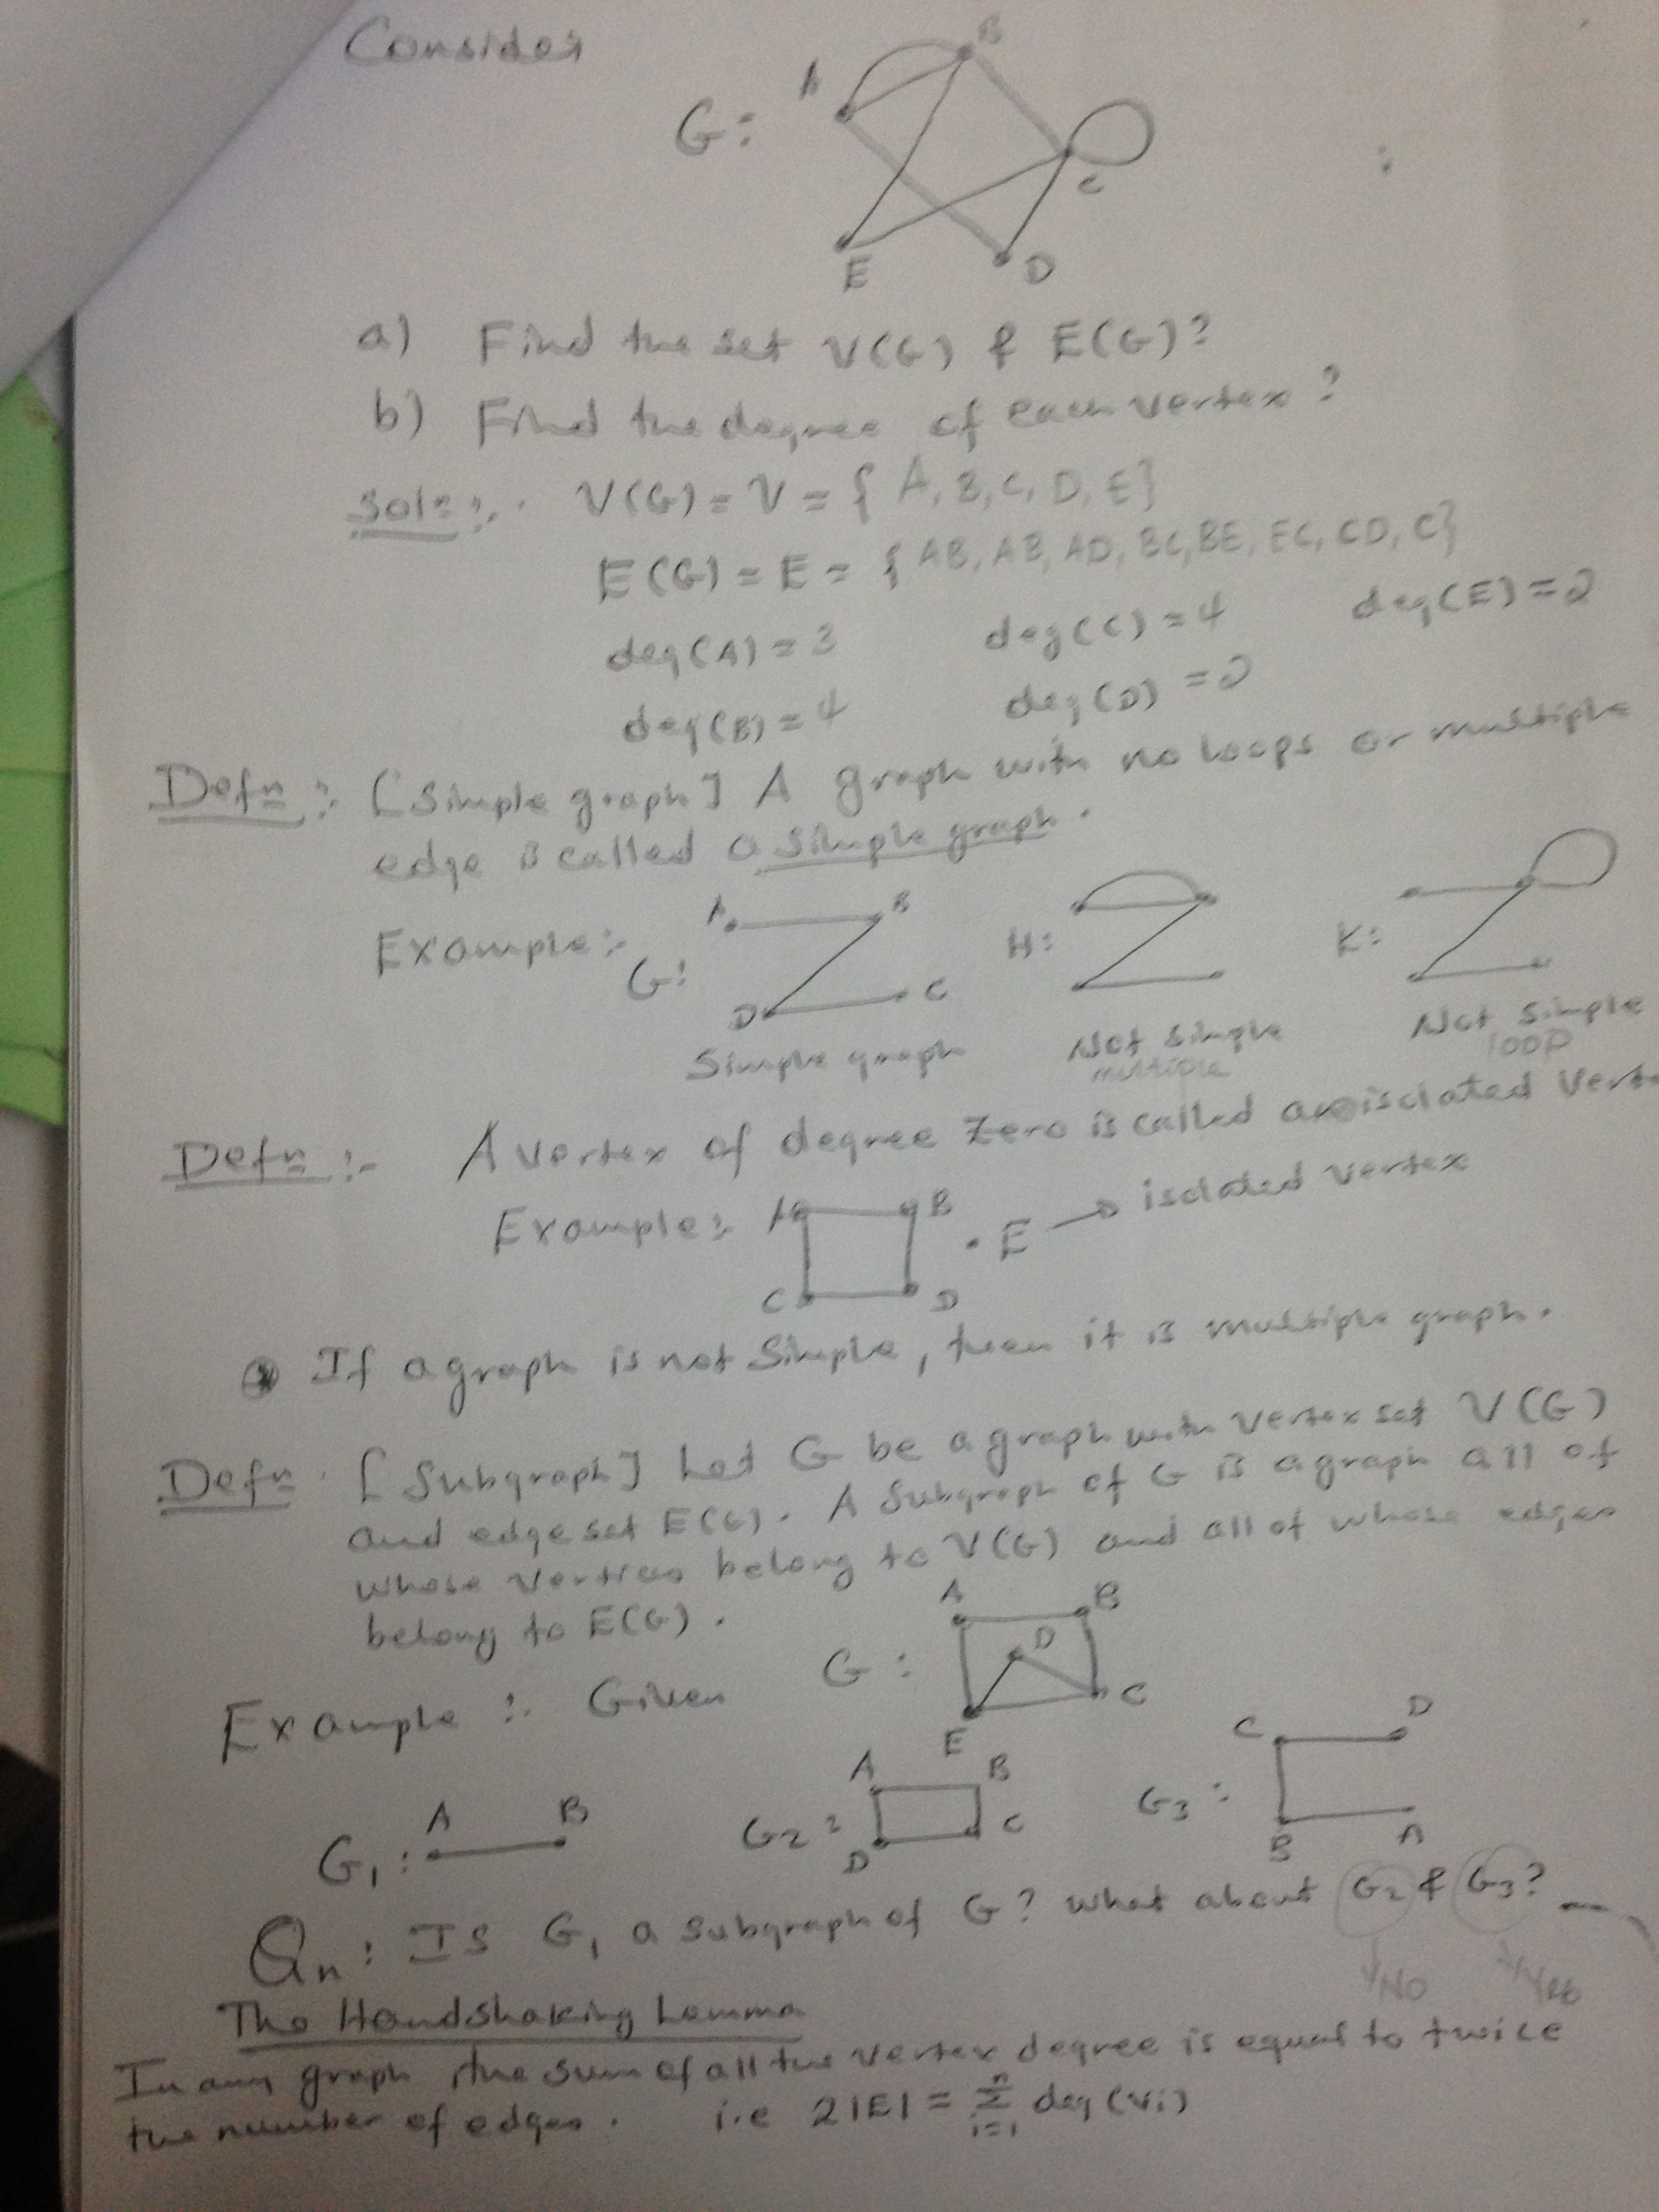 Consider
G:
A
B
C
E
D
a) Find the set V(G) & E(G)?
b) Find the degree of each vertex?
Soln:. V(G) = V = { A, B, C, D, E}
E(G) = E = { AB, AB, AD, BC, BE, EC, CD, C}
deg(A) = 3 deg(C) = 4 deg(E) = 2
deg(B) = 4 deg(D) = 2
Defn:. [Simple graph] A graph with no loops or multiple
edge is called a simple graph.
Example:- G: A B D C H: K:
Simple graph Not Simple Not Simple
multiple loop
Defn:- A vertex of degree zero is called an isolated Verte
Example: A B C D . E → isolated vertex
If a graph is not Simple, then it is multiple graph.
Defn. [Subgraph] Let G be a graph with Vertex set V(G)
and edge set E(G). A Subgraph of G is a graph all of
whose vertices belong to V(G) and all of whose edges
belong to E(G).
Example:. Given G: A B D C E
G1: A B G2: A B D C G3: C D B A
Qn: Is G1 a subgraph of G? what about G2 & G3?
NO Yes
The Handshaking Lemma
In any graph, the sum of all the vertex degree is equal to twice
the number of edges. i.e 2|E| = n Σ i=1 deg(vi)